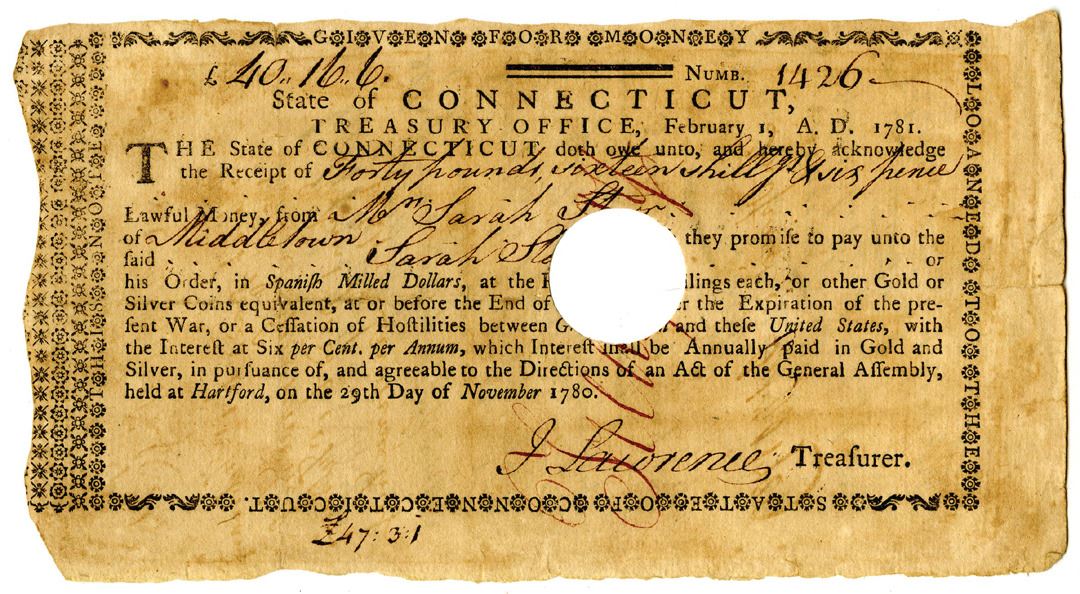 GIVEN FOR MONEY
£ 40.. 16.. 6. NUMB. 1426
State of CONNECTICUT,
TREASURY OFFICE, February 1, A. D. 1781.
THE State of CONNECTICUT doth owe unto, and hereby acknowledge
the Receipt of Forty pounds, sixteen shillgs & six pence
Lawful Money, from Mrs. Sarah
of Middletown they promiſe to pay unto the
ſaid Sarah or
his Order, in Spaniſh Milled Dollars, at the ilings each, or other Gold or
Silver Coins equivalent, at or before the End of the Expiration of the pre-
ſent War, or a Ceſſation of Hoſtilities between and theſe United States, with
the Intereſt at Six per Cent. per Annum, which Intereſt ſhall be Annually paid in Gold and
Silver, in purſuance of, and agreeable to the Directions of an Act of the General Aſſembly,
held at Hartford, on the 29th Day of November 1780.
J Lawrence Treaſurer.
STATE OF CONNECTICUT.
£47: 3: 1
THIS NOTE IS
LOANED TO THE